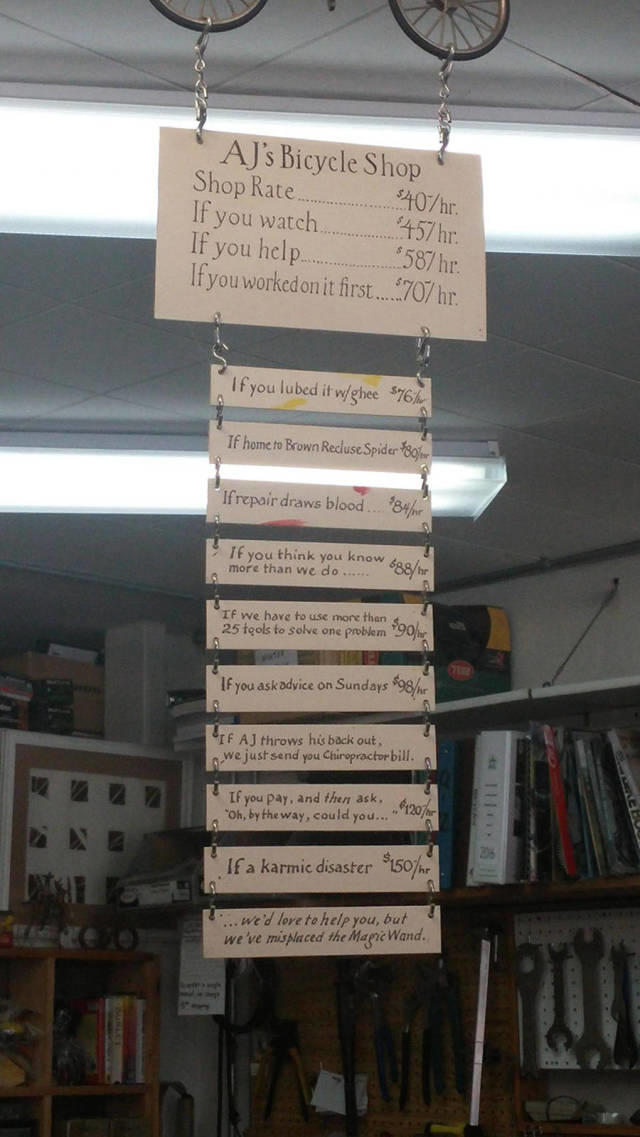 AJ's Bicycle Shop
Shop Rate..................$40/hr.
If you watch..............$45/hr.
If you help.................$58/hr.
If you worked on it first......$70/hr.
If you lubed it w/ghee $76/hr
If home to Brown Recluse Spider $80/hr
If repair draws blood.... $84/hr
If you think you know
more than we do...... $88/hr
If we have to use more than
25 tools to solve one problem $90/hr
If you ask advice on Sundays $98/hr
If AJ throws his back out,
we just send you Chiropractor bill.
If you pay, and then ask,
"Oh, by the way, could you... .. $120/hr
If a karmic disaster $150/hr
... we'd love to help you, but
we've misplaced the Magic Wand.
2016